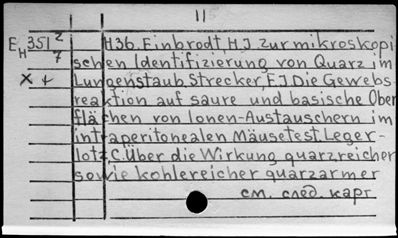 11
EH 351 2/7 НЗб. Einbrodt, H.J. Zur mikroskopi
schen Identifizierung von Quarz im
x + Lungenstaub. Strecker, F.J Die Gewebs-
reaktion auf saure und basische Ober
flächen von Ionen-Austauschern im
intraperitonealen Mäusetest. Leger-
lotz, C. Über die Wirkung quarzreicher
sowie kohlereicher quarzarmer
см. след. карт